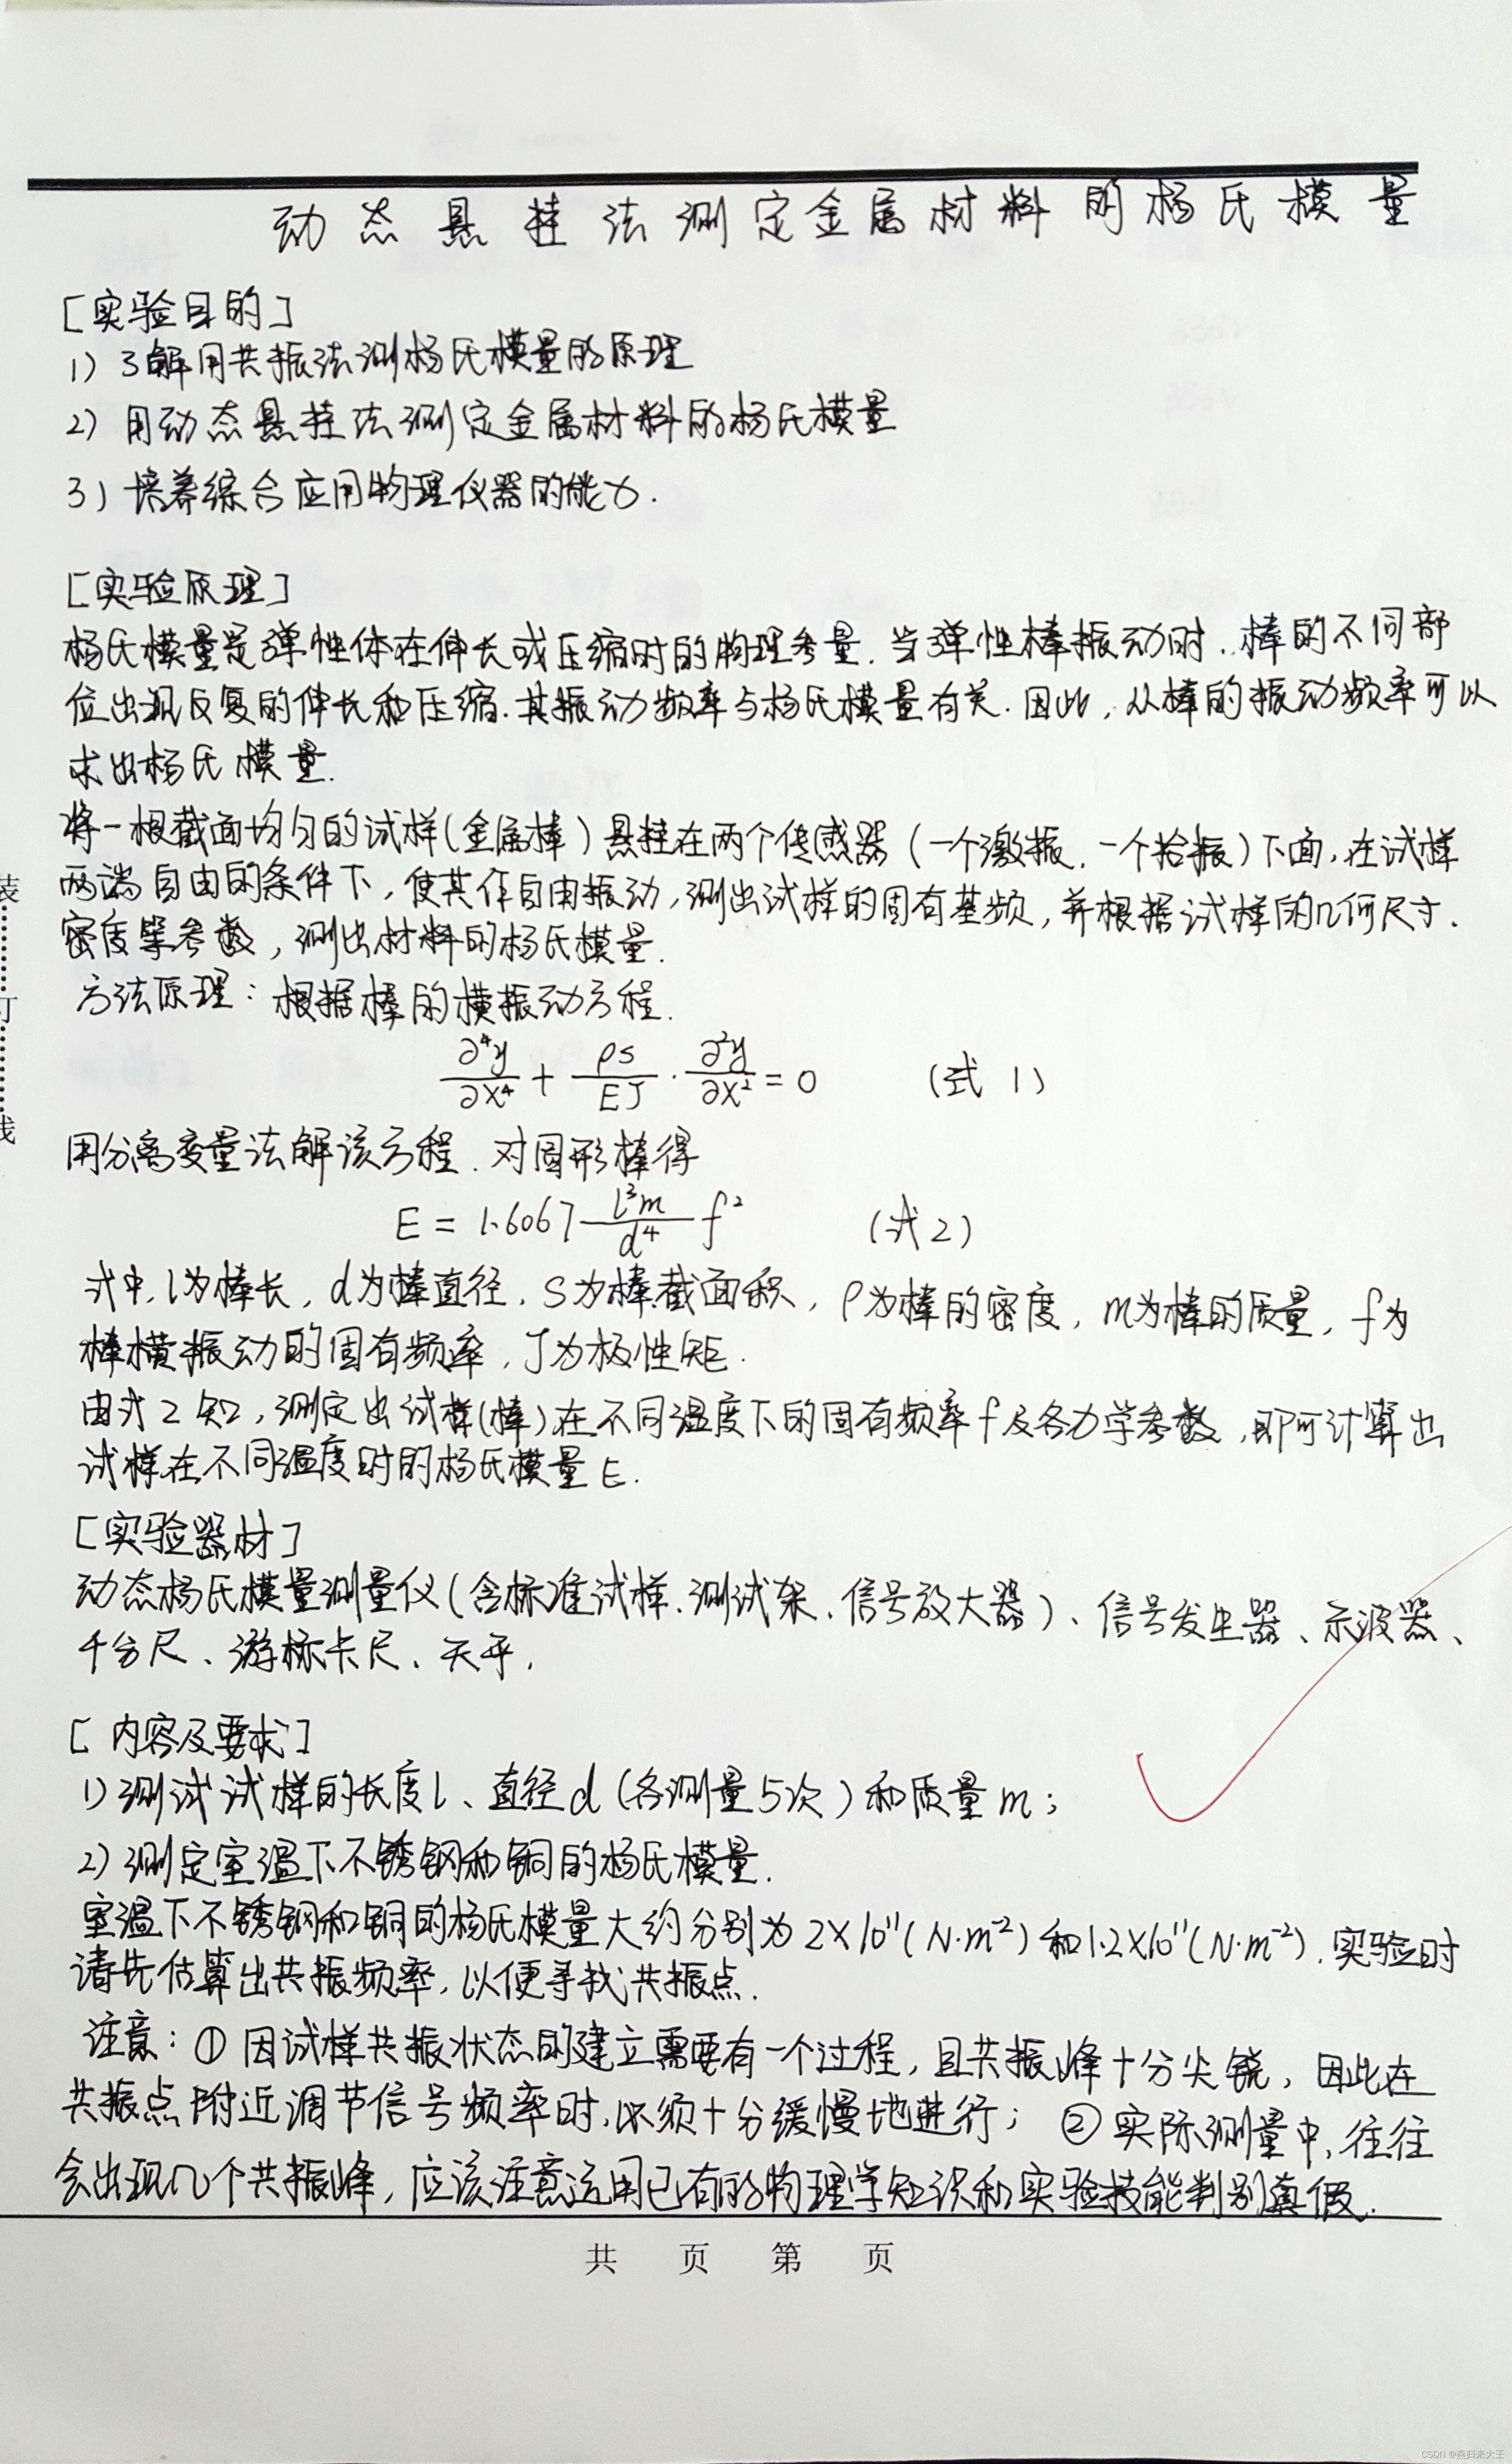 动态悬挂法测定金属材料的杨氏模量
[实验目的]
1) 了解用共振法测杨氏模量的原理
2) 用动态悬挂法测定金属材料的杨氏模量
3) 培养综合应用物理仪器的能力.
[实验原理]
杨氏模量是弹性体在伸长或压缩时的物理参量.当弹性棒振动时..棒的不同部
位出现反复的伸长和压缩.其振动频率与杨氏模量有关.因此,从棒的振动频率可以
求出杨氏模量.
将一根截面均匀的试样(金属棒)悬挂在两个传感器(一个激振.一个拾振)下面,在试样
两端自由的条件下,使其作自由振动,测出试样的固有基频,并根据试样的几何尺寸.
密度等参数,测出材料的杨氏模量.
方法原理:根据棒的横振动方程.
∂⁴y/∂x⁴ + ρs/EJ · ∂²y/∂x² = 0 (式 1)
用分离变量法解该方程.对圆形棒得
E = 1.6067 l³m/d⁴ f² (式2)
式中,l为棒长,d为棒直径.S为棒截面积,ρ为棒的密度,m为棒的质量,f为
棒横振动的固有频率,J为极性矩.
由式2知,测定出试样(棒)在不同温度下的固有频率f及各力学参数,即可计算出
试样在不同温度时的杨氏模量E.
[实验器材]
动态杨氏模量测量仪(含标准试样.测试架、信号放大器)、信号发生器、示波器、
千分尺、游标卡尺、天平,
[内容及要求]
1)测试试样的长度l、直径d(各测量5次)和质量m;
2)测定室温下不锈钢和铜的杨氏模量.
室温下不锈钢和铜的杨氏模量大约分别为2×10¹¹(N·m⁻²)和1.2×10¹¹(N·m⁻²).实验时
请先估算出共振频率,以便寻找共振点.
注意:①因试样共振状态的建立需要有一个过程,且共振峰十分尖锐,因此在
共振点附近调节信号频率时,必须十分缓慢地进行;②实际测量中,往往
会出现几个共振峰,应该注意运用已有的物理学知识和实验技能判别真假.
装
订
线
共 页 第 页
CSDN @燕归来大王